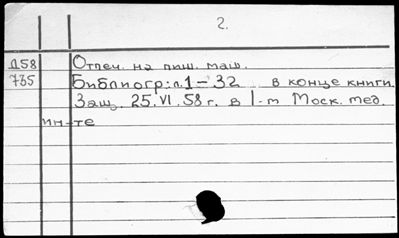 2.
Д58 Отпеч. на пиш. маш.
735 Библиогр: л. 1-32 в конце книги.
Защ. 25.VI.58 г. в I-м Моск. мед.
ин-те